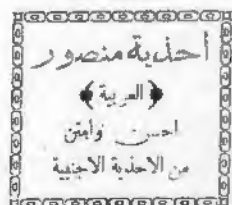 أحذية منصور
﴿العربية﴾
احسن وامتن
من الاحذية الاجنبية